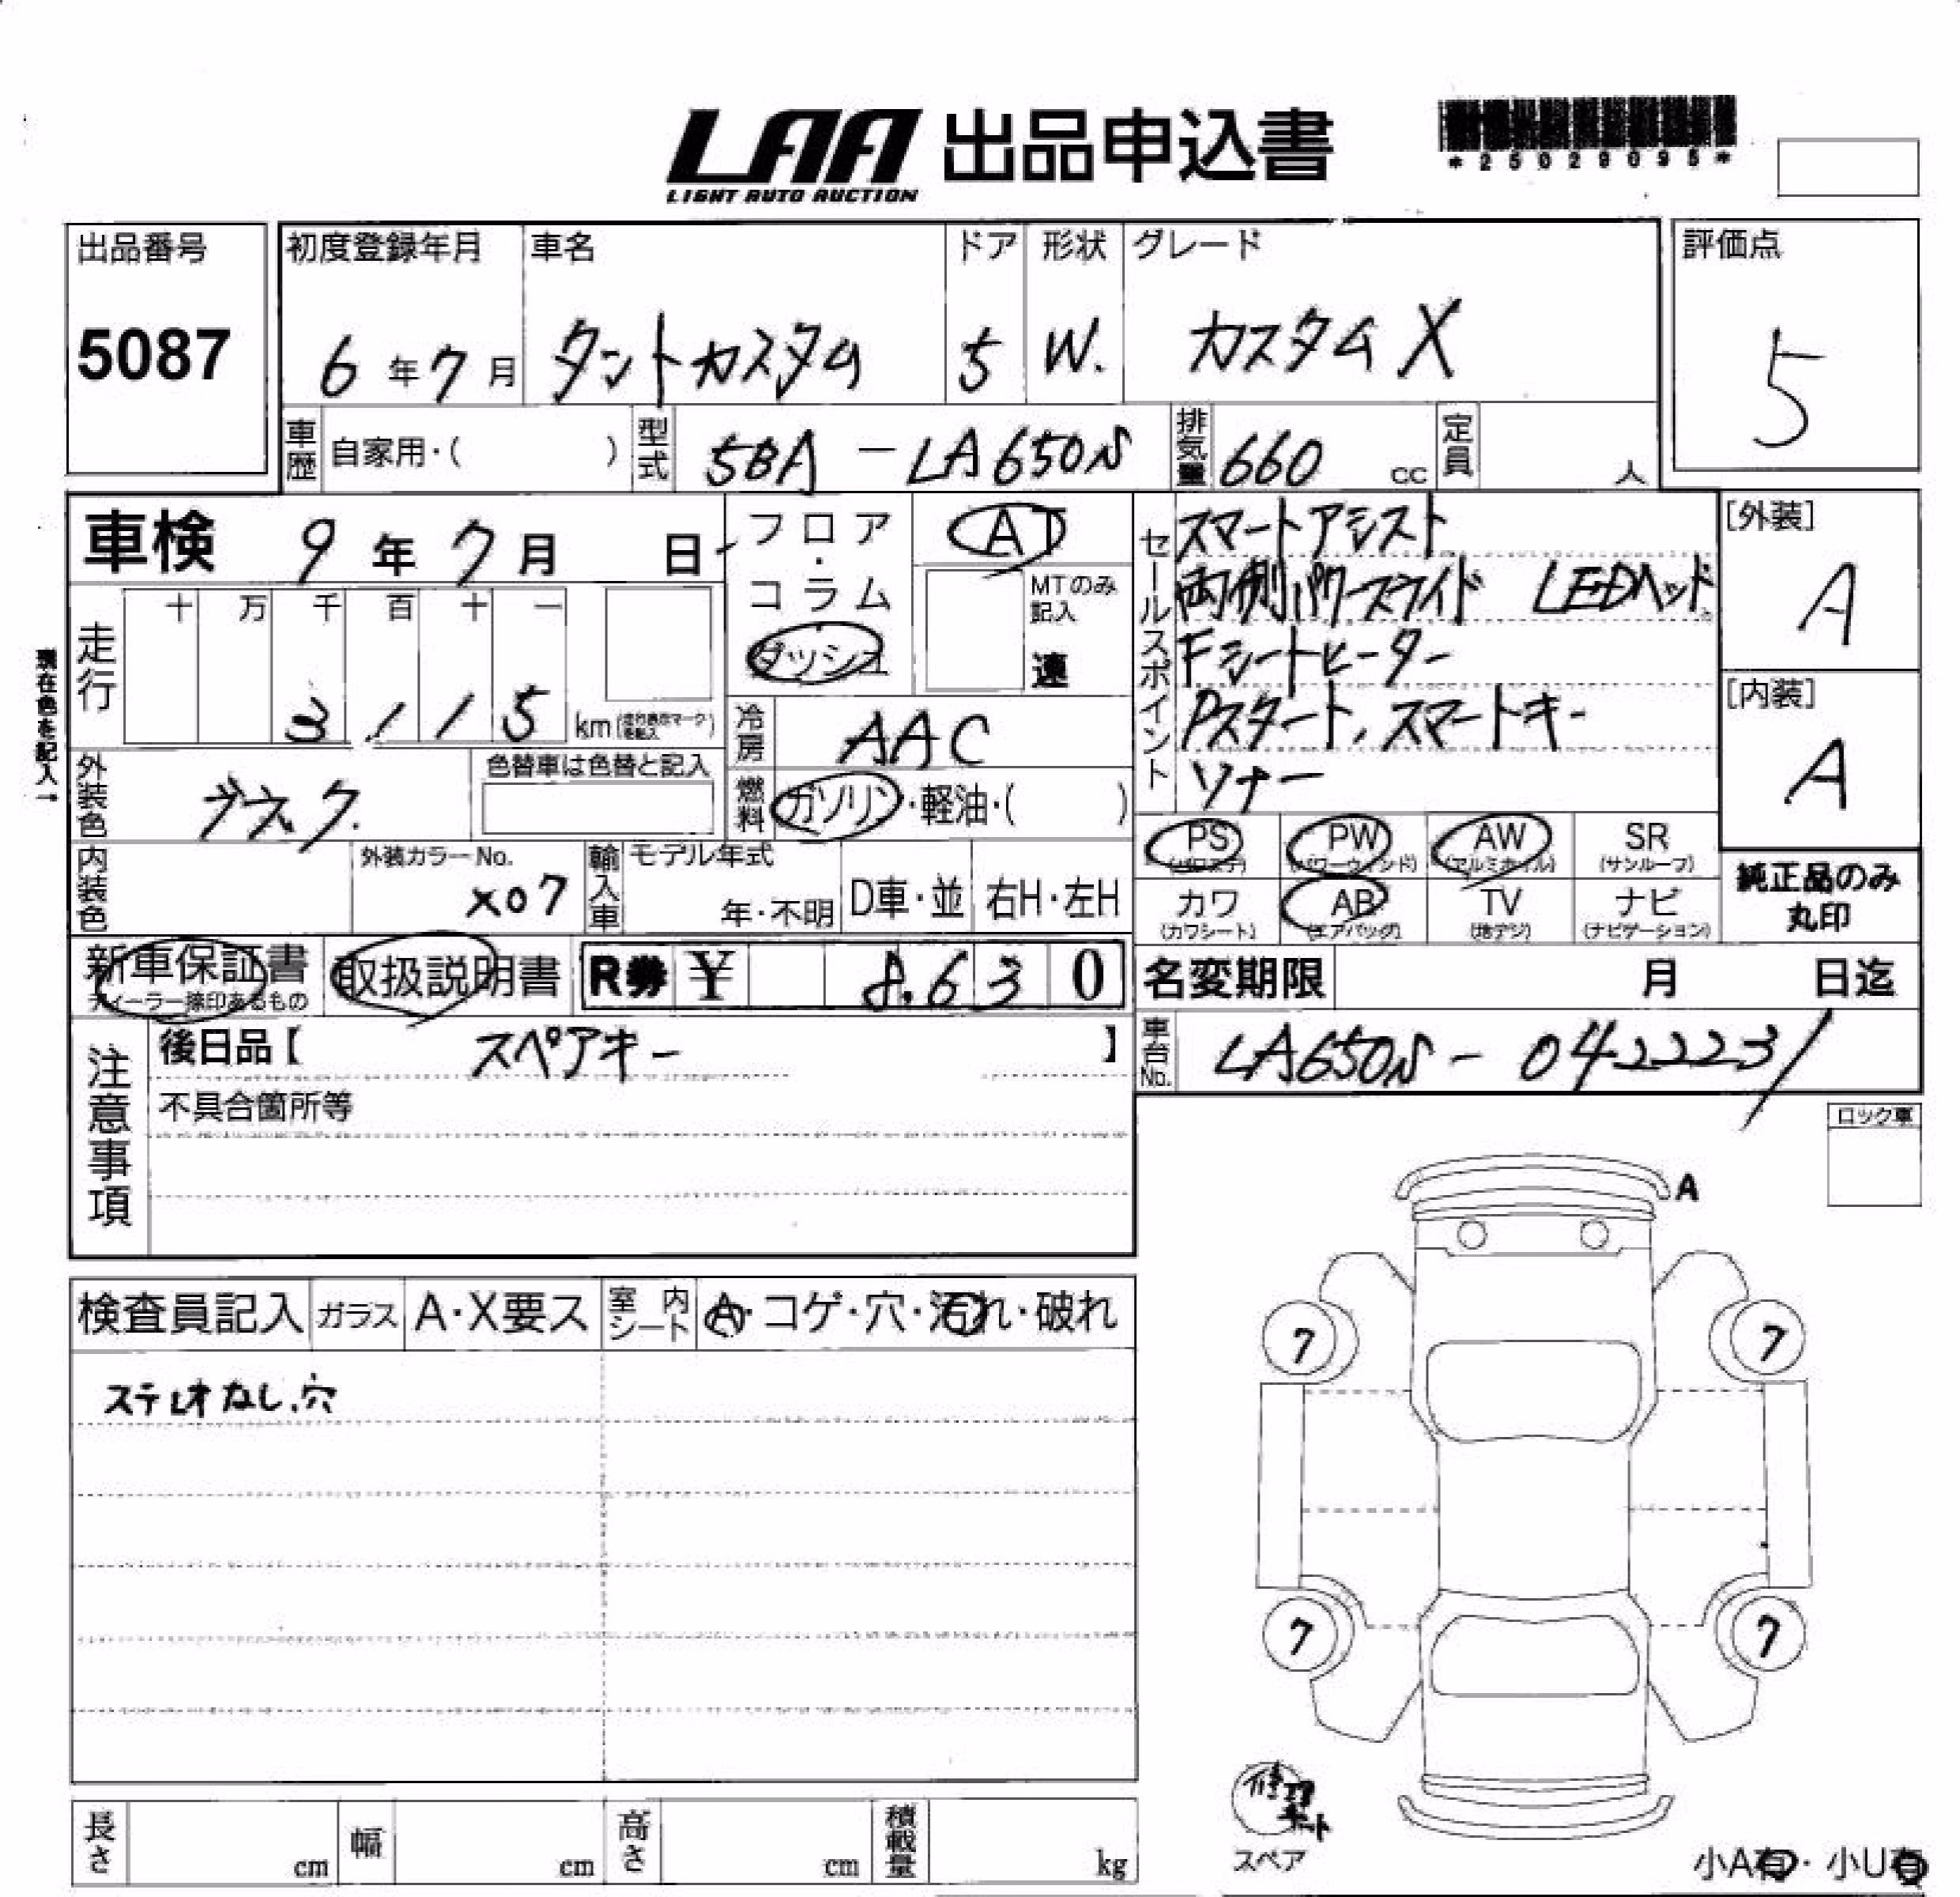 LAA 出品申込書
LIGHT AUTO AUCTION
*25029095*
出品番号 初度登録年月 車名 ドア 形状 グレード 評価点
5087 6年7月 タントカスタム 5 W. カスタムX 5
車歴 自家用・( ) 型式 5BA-LA650S 排気量 660 cc 定員 人
車検 9年7月 日
フロア・コラム ダッシュ
AT
MTのみ記入 速
セールスポイント
スマートアシスト
両側パワースライド LEDヘッド
Fシートヒーター
Pスタート、スマートキー
ソナー
[外装] A
[内装] A
現在色を記入→
走行 十 万 千 百 十 一
3 1 1 5 km
冷房 AAC
外装色 ブラック 色替車は色替と記入
燃料 ガソリン・軽油・( )
PS PW AW SR
(パワステ) (パワーウィンド) (アルミホイル) (サンルーフ)
カワ AB TV ナビ
(カワシート) (エアバッグ) (地デジ) (ナビゲーション)
純正品のみ
丸印
内装色 外装カラーNo. X07 輸入車 モデル年式 年・不明 D車・並 右H・左H
新車保証書 取扱説明書 R券 ¥ 8,630
ディーラー捺印あるもの
名変期限 月 日迄
注意事項
後日品【 スペアキー 】
不具合箇所等
車台No. LA650S-0422231
ロック車
A
検査員記入 ガラス A・X要ス 室内シート A・コゲ・穴・汚れ・破れ
ステレオなし、穴
7 7
7 7
修理キット
スペア
長さ cm 幅 cm 高さ cm 積載量 kg
小A有・小U有